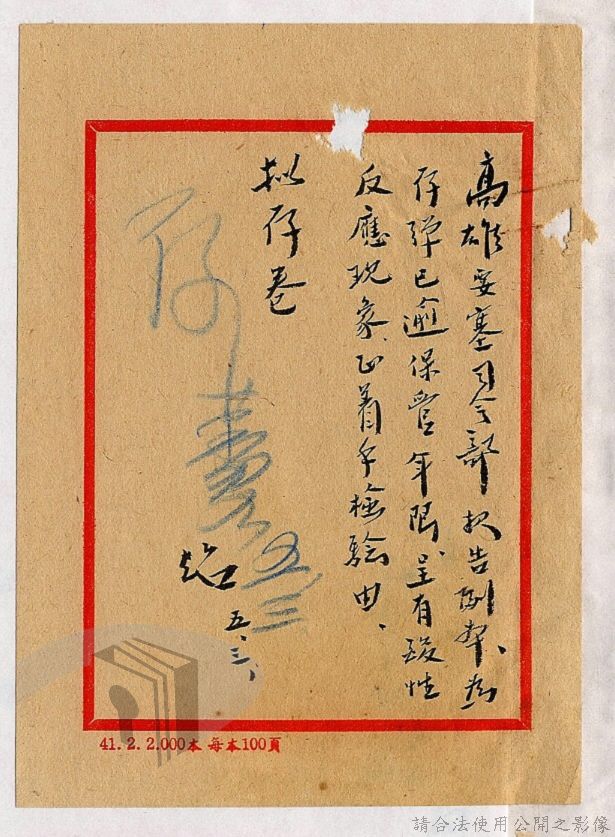 高雄要塞司令部報告副本、為
存彈已逾保管年限、呈有酸性
反應現象、正着手檢驗由、
擬存卷
存
五、三
五、三、
41. 2. 2.000本 每本100頁
請合法使用公開之影像